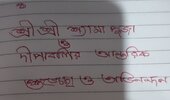 শ্রী শ্রী শ্যামা পূজা
ও
দীপাবলীর আন্তরিক
শুভেচ্ছা ও অভিনন্দন